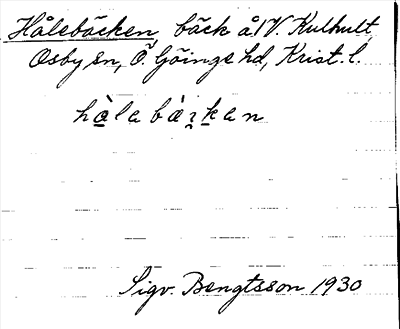 Hålebäcken, bäck å V. Kulhult,
Osby sn, Ö. Göinge hd, Krist. l.
Sigv. Bengtsson 1930